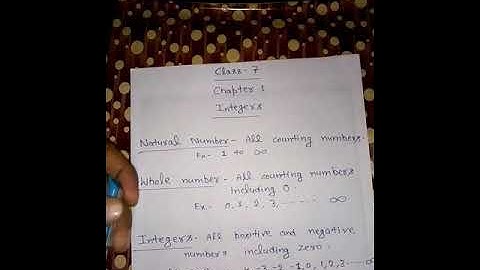 Class - 7
Chapter 1
Integers
Natural Number - All counting numbers.
Ex - 1 to ∞
Whole number - All counting numbers
including 0.
Ex. 0, 1, 2, 3, ------- ∞
Integers - All positive and negative
numbers including zero.
-3, -2, -1, 0, 1, 2, 3, ----- ∞